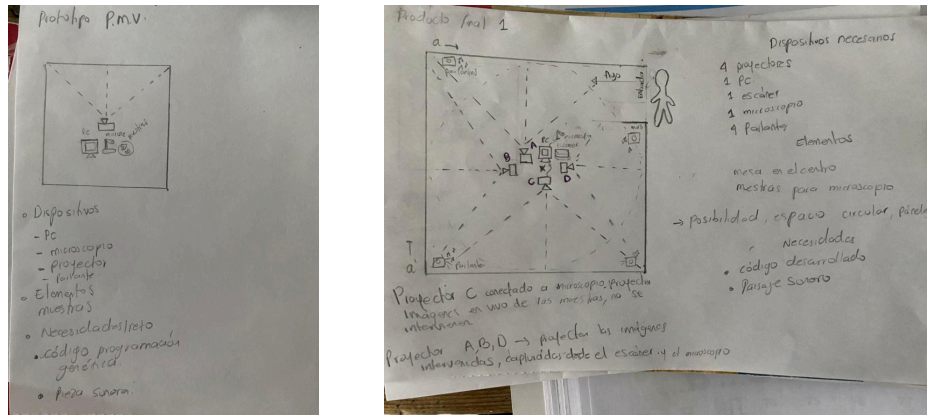 Prototipo P.M.V.
PC
muestras
o Dispositivos
- PC
- microscopio
- proyector
- parlante
o Elementos
muestras
o Necesidades/reto
• código programación
genérica.
• Pieza sonora.
Producto final 1
a →
parlante
flujo
entrada
A
PC
B
C
D
a'
parlante
Proyector C conectado a microscopio, proyecta
imágenes en vivo de las muestras, no se
intervienen
Proyector A, B, D → proyectar las imágenes
intervenidas, capturadas desde el escáner y el microscopio
Dispositivos necesarios
4 proyectores
1 PC
1 escáner
1 microscopio
4 Parlante
Elementos
mesa en el centro
mestras para microscopio
→ posibilidad, espacio circular,
Necesidades
• código desarrollado
• Paisaje sonoro